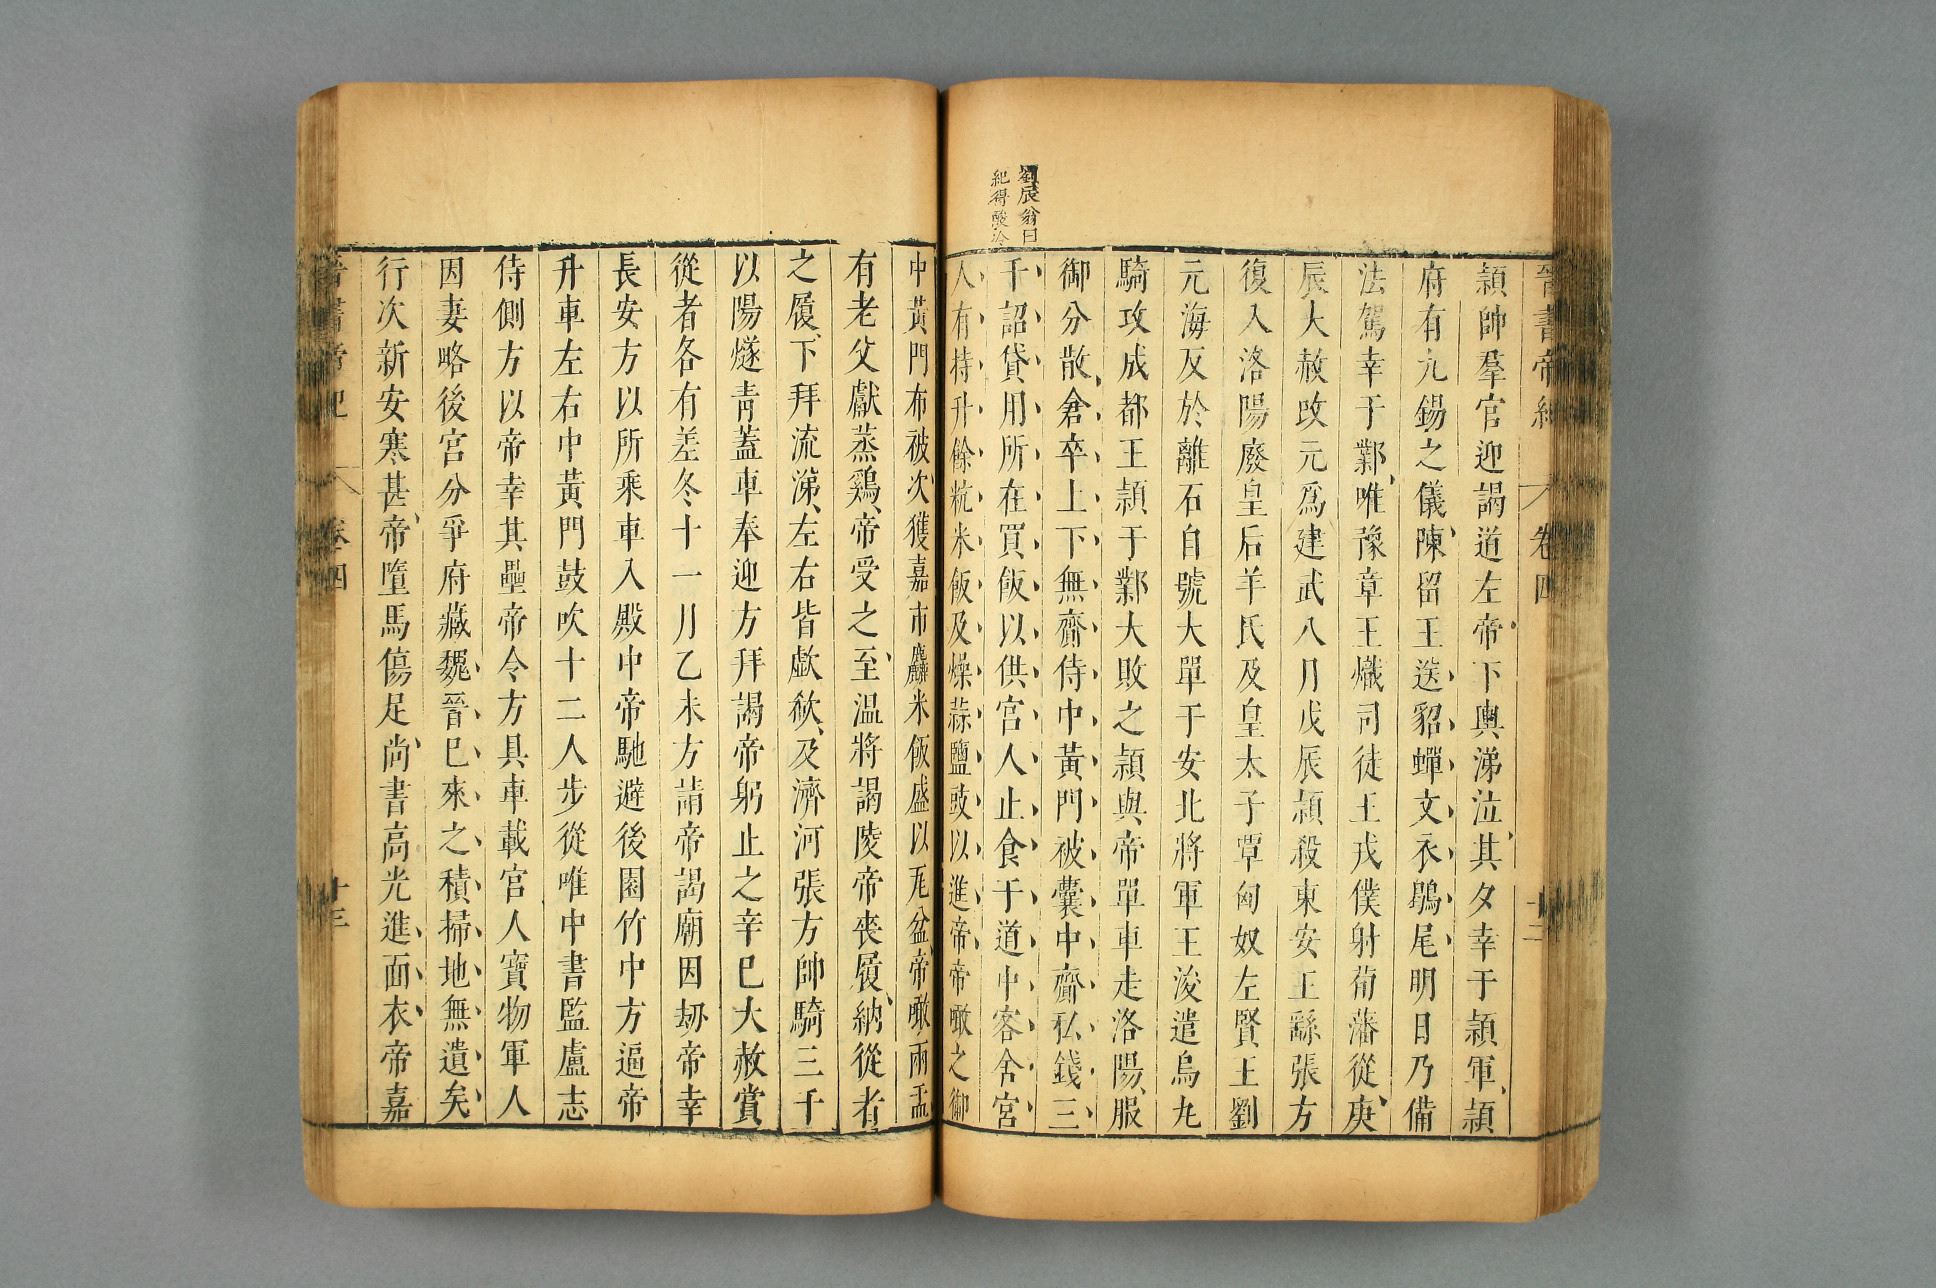 晉書帝紀 卷四 十二
劉辰翁曰
紀得酸冷
頴帥羣官迎謁道左帝下輿涕泣其夕幸于頴軍頴
府有九錫之儀陳留王送貂蟬文衣鶡尾明日乃備
法駕幸于鄴唯豫章王熾司徒王戎僕射荀藩從庚
辰大赦改元爲建武八月戊辰頴殺東安王繇張方
復入洛陽廢皇后羊氏及皇太子覃匈奴左賢王劉
元海反於離石自號大單于安北將軍王浚遣烏丸
騎攻成都王頴于鄴大敗之頴與帝單車走洛陽服
御分散倉卒上下無齎侍中黃門被囊中齎私錢三
千詔貸用所在買飯以供宮人止食于道中客舍宮
人有持升餘秔米飯及燥蒜鹽豉以進帝帝噉之御
中黃門布被次獲嘉市麤米飯盛以瓦盆帝噉兩盂
有老父獻蒸鷄帝受之至温將謁陵帝喪履納從者
之履下拜流涕左右皆歔欷及濟河張方帥騎三千
以陽燧青蓋車奉迎方拜謁帝躬止之辛巳大赦賞
從者各有差冬十一月乙未方請帝謁廟因刼帝幸
長安方以所乘車入殿中帝馳避後園竹中方逼帝
升車左右中黃門鼓吹十二人步從唯中書監盧志
侍側方以帝幸其壘帝令方具車載宮人寶物軍人
因妻略後宮分爭府藏魏晉已來之積掃地無遺矣
行次新安寒甚帝墮馬傷足尚書高光進面衣帝嘉
晉書帝紀 卷四 十三